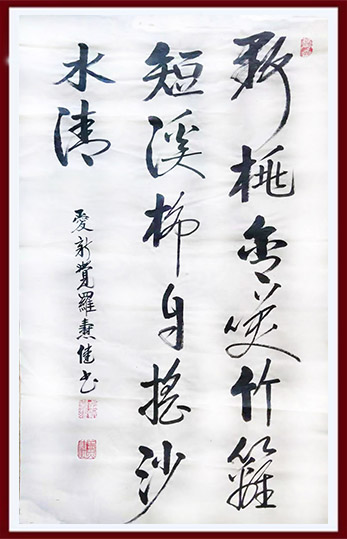 野桃含笑竹籬
短溪柳自搖沙
水清
愛新覺羅燾佳书